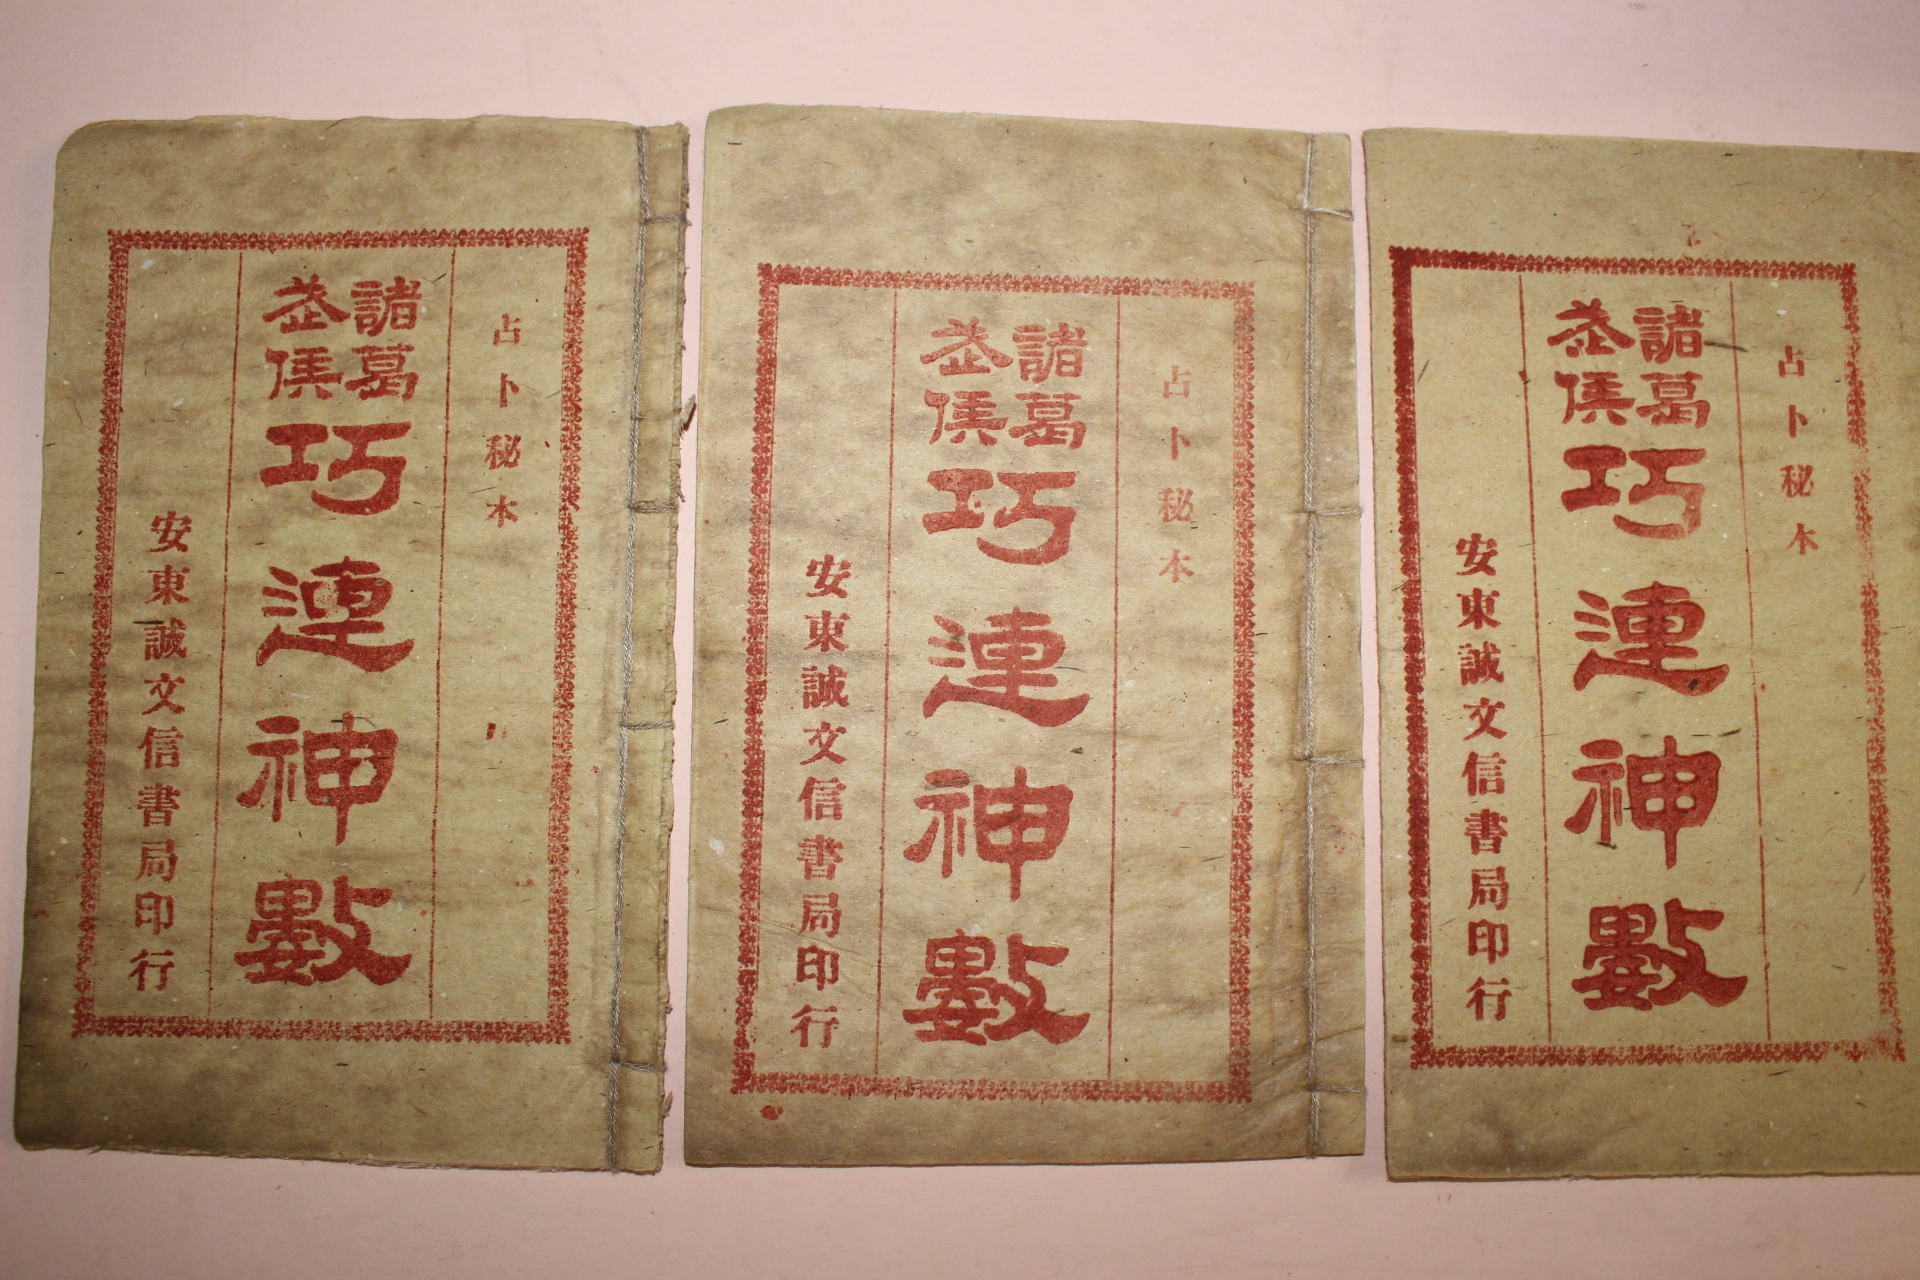 占卜秘本
諸葛
武侯
巧連神數
安東誠文信書局印行
占卜秘本
諸葛
武侯
巧連神數
安東誠文信書局印行
占卜秘本
諸葛
武侯
巧連神數
安東誠文信書局印行